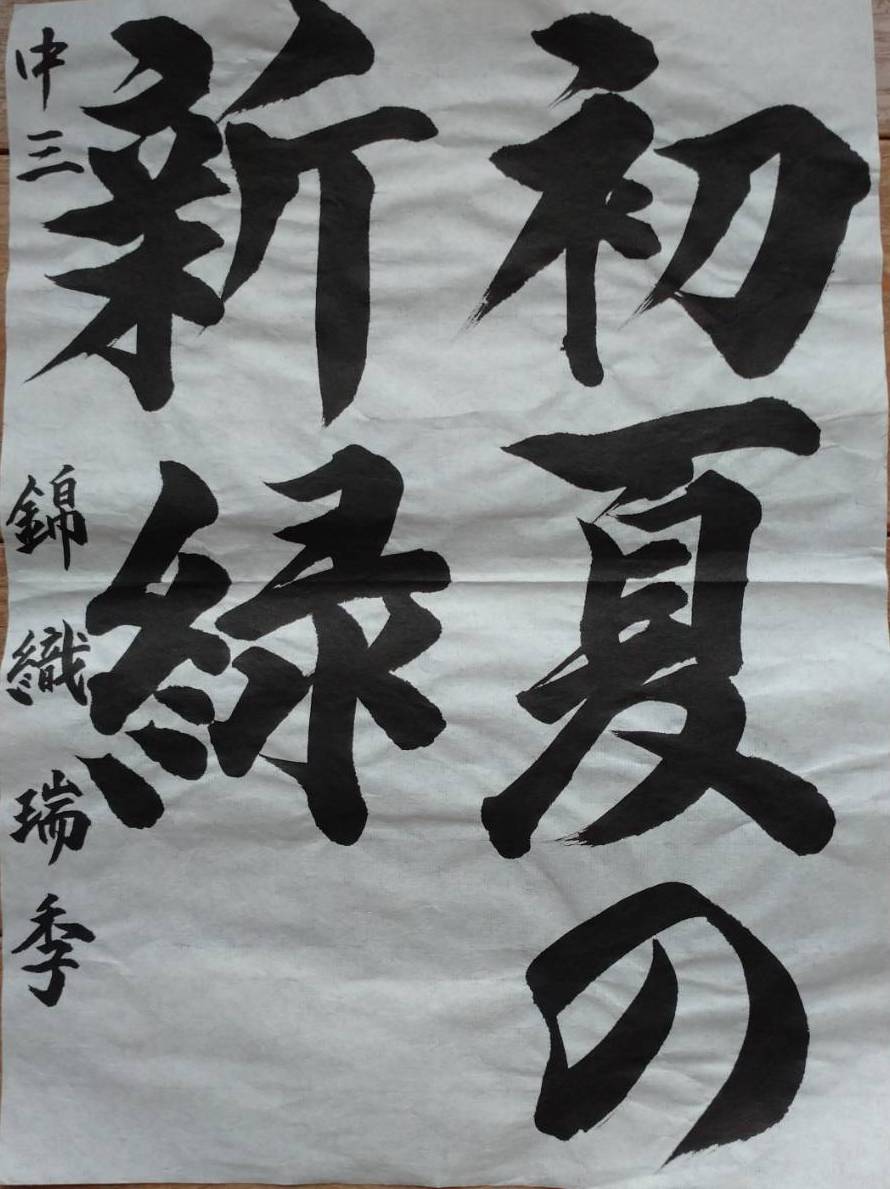 初夏の
新緑
中三 錦織瑞季